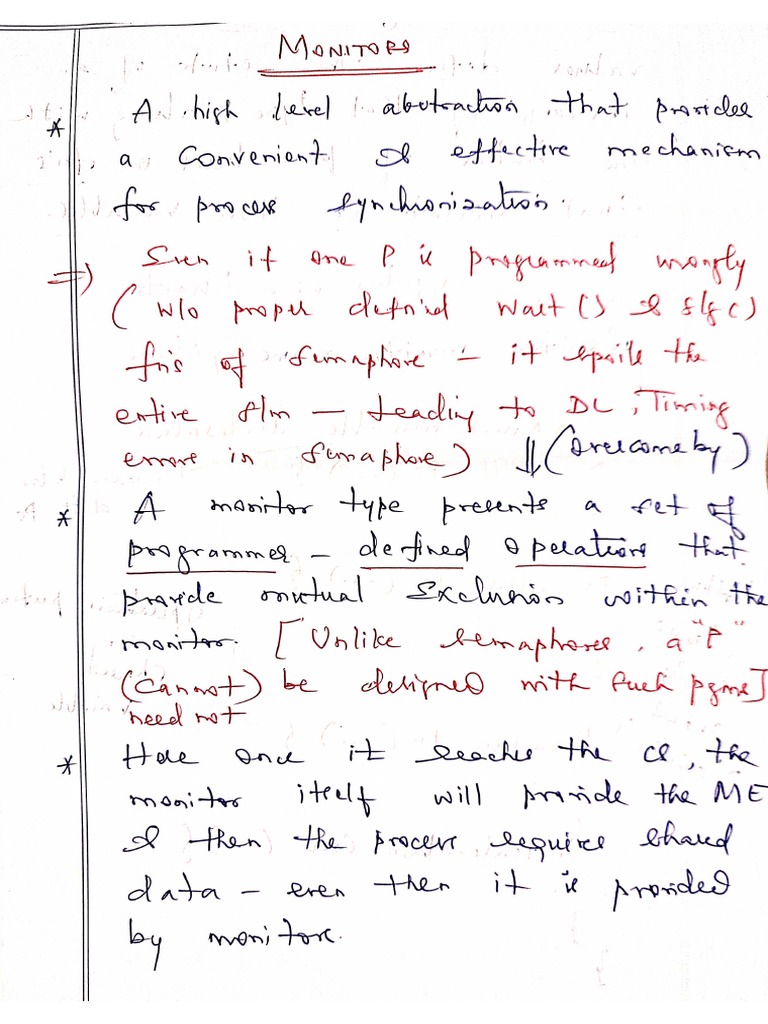 MONITORS
* A high level abstraction that provides
a Convenient & effective mechanism
for process synchronization.
=> Even if one P is programmed wrongly
(w/o proper defined wait() & sig()
fn's of semaphore – it spoils the
entire s/m – leading to DL, Timing
errors in semaphore) ⇓ (overcome by)
* A monitor type presents a set of
programmer – defined operations that
provide mutual Exclusion within the
monitor. [Unlike semaphores, a "P"
(cannot) be designed with such pgms]
need not
* Here once it reaches the CS, the
monitor itself will provide the ME
& then the process requires shared
data – even then it is provided
by monitors.